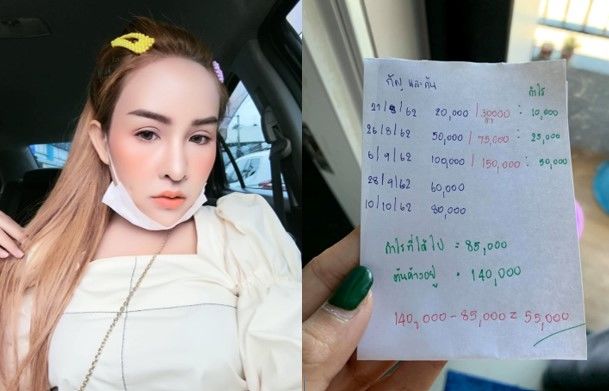 กำไร
21/8/62 20,000 / 30000 : 10,000
26/8/62 50,000 / 75,000 : 25,000
6/9/62 100,000 / 150,000 : 50,000
28/9/62 60,000
10/10/62 80,000
กำไรที่ได้ไป = 85,000
ต้นค้างอยู่ • 140,000
140,000 - 85,000 = 55,000